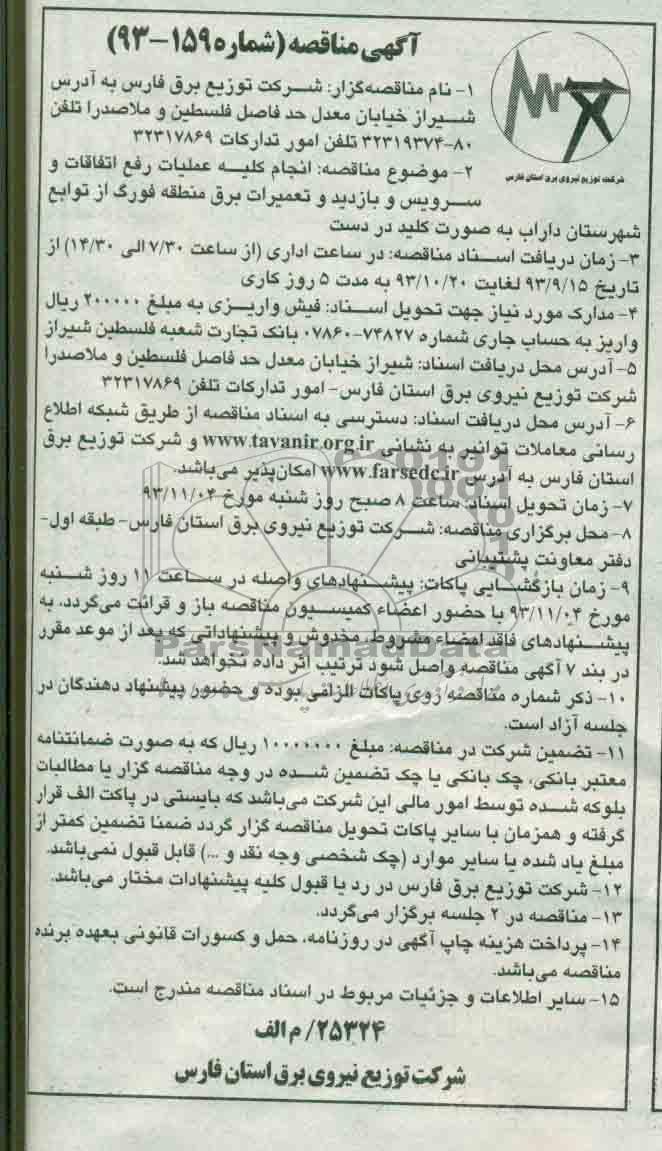 آگهی مناقصه (شماره ۱۵۹-۹۳)
شرکت توزیع نیروی برق استان فارس
۱- نام مناقصه‌گزار: شرکت توزیع برق فارس به آدرس
شیراز خیابان معدل حد فاصل فلسطین و ملاصدرا تلفن
۸۰-۳۲۳۱۹۳۷۴ تلفن امور تدارکات ۳۲۳۱۷۸۶۹
۲- موضوع مناقصه: انجام کلیه عملیات رفع اتفاقات و
سرویس و بازدید و تعمیرات برق منطقه فورگ از توابع
شهرستان داراب به صورت کلید در دست
۳- زمان دریافت اسناد مناقصه: در ساعت اداری (از ساعت ۷/۳۰ الی ۱۴/۳۰) از
تاریخ ۹۳/۹/۱۵ لغایت ۹۳/۱۰/۲۰ به مدت ۵ روز کاری
۴- مدارک مورد نیاز جهت تحویل اسناد: فیش واریزی به مبلغ ۲۰۰۰۰۰ ریال
واریز به حساب جاری شماره ۷۴۸۲۷-۰۷۸۶۰ بانک تجارت شعبه فلسطین شیراز
۵- آدرس محل دریافت اسناد: شیراز خیابان معدل حد فاصل فلسطین و ملاصدرا
شرکت توزیع نیروی برق استان فارس- امور تدارکات تلفن ۳۲۳۱۷۸۶۹
۶- آدرس محل دریافت اسناد: دسترسی به اسناد مناقصه از طریق شبکه اطلاع
رسانی معاملات توانیر به نشانی www.tavanir.org.ir و شرکت توزیع برق
استان فارس به آدرس www.farsedc.ir امکان‌پذیر می‌باشد.
۷- زمان تحویل اسناد: ساعت ۸ صبح روز شنبه مورخ ۹۳/۱۱/۰۴
۸- محل برگزاری مناقصه: شرکت توزیع نیروی برق استان فارس- طبقه اول-
دفتر معاونت پشتیبانی
۹- زمان بازگشایی پاکات: پیشنهادهای واصله در ساعت ۱۱ روز شنبه
مورخ ۹۳/۱۱/۰۴ با حضور اعضاء کمیسیون مناقصه باز و قرائت می‌گردد. به
پیشنهادهای فاقد امضاء مشروط، مخدوش و پیشنهاداتی که بعد از موعد مقرر
در بند ۷ آگهی مناقصه واصل شود ترتیب اثر داده نخواهد شد.
۱۰- ذکر شماره مناقصه روی پاکات الزامی بوده و حضور پیشنهاد دهندگان در
جلسه آزاد است.
۱۱- تضمین شرکت در مناقصه: مبلغ ۱۰۰۰۰۰۰۰ ریال که به صورت ضمانتنامه
معتبر بانکی، چک بانکی یا چک تضمین شده در وجه مناقصه گزار یا مطالبات
بلوکه شده توسط امور مالی این شرکت می‌باشد که بایستی در پاکت الف قرار
گرفته و همزمان با سایر پاکات تحویل مناقصه گزار گردد ضمنا تضمین کمتر از
مبلغ یاد شده یا سایر موارد (چک شخصی وجه نقد و ...) قابل قبول نمی‌باشد.
۱۲- شرکت توزیع برق فارس در رد یا قبول کلیه پیشنهادات مختار می‌باشد.
۱۳- مناقصه در ۲ جلسه برگزار می‌گردد.
۱۴- پرداخت هزینه چاپ آگهی در روزنامه، حمل و کسورات قانونی بعهده برنده
مناقصه می‌باشد.
۱۵- سایر اطلاعات و جزئیات مربوط در اسناد مناقصه مندرج است.
۲۵۳۲۴/ م الف
شرکت توزیع نیروی برق استان فارس
ParsNamadData